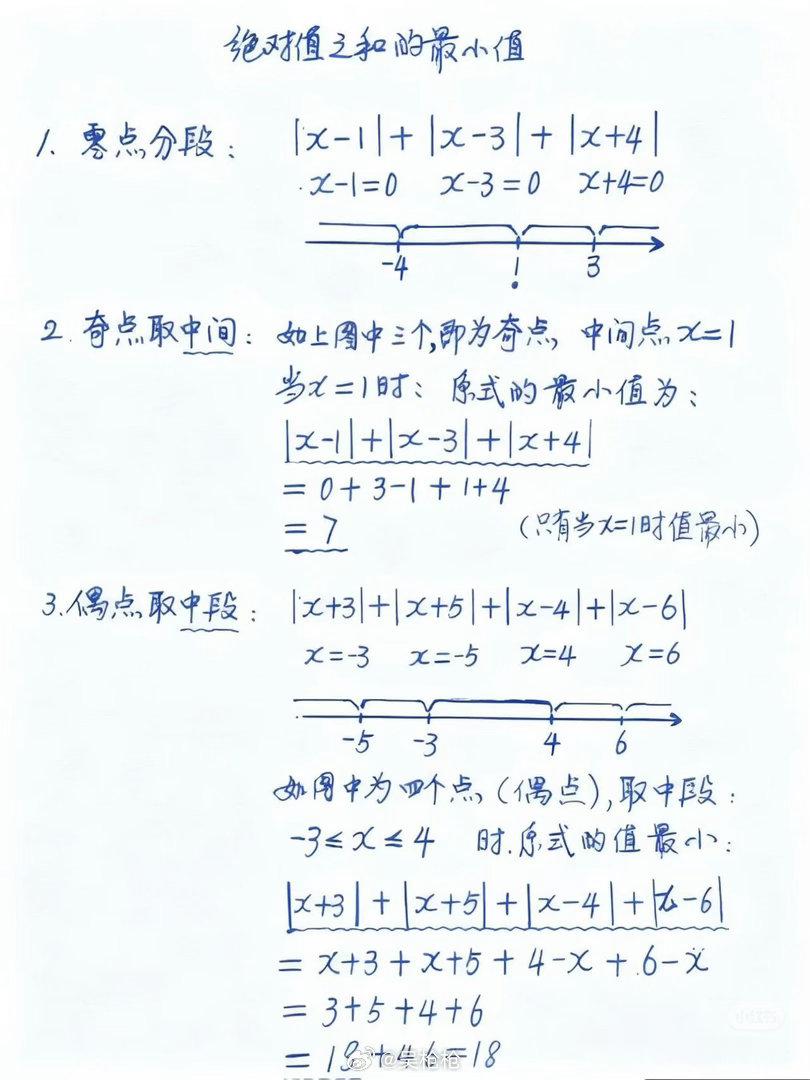 绝对值之和的最小值
1. 零点分段: |x-1|+|x-3|+|x+4|
x-1=0 x-3=0 x+4=0
-4 1 3
2. 奇点取中间: 如上图中三个,即为奇点 中间点x=1
当x=1时: 原式的最小值为:
|x-1|+|x-3|+|x+4|
=0+3-1+1+4
=7 (只有当x=1时值最小)
3.偶点取中段: |x+3|+|x+5|+|x-4|+|x-6|
x=-3 x=-5 x=4 x=6
-5 -3 4 6
如图中为四个点(偶点),取中段:
-3≤x≤4 时.原式的值最小:
|x+3|+|x+5|+|x-4|+|x-6|
=x+3+x+5+4-x+6-x
=3+5+4+6
=18
@吴枪枪
小红书